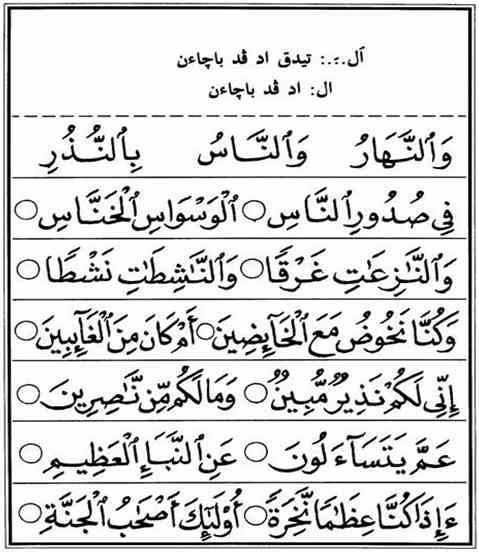 ال..: تيدق اد ڤد باچاءن
ال: اد ڤد باچاءن
وَٱلنَّهَارُ وَٱلنَّاسُ بِٱلنُّذُرِ
فِي صُدُورِ ٱلنَّاسِ ○ ٱلْوَسْوَاسِ ٱلْخَنَّاسِ ○
وَٱلنَّٰزِعَٰتِ غَرْقًا ○ وَٱلنَّٰشِطَٰتِ نَشْطًا ○
وَكُنَّا نَخُوضُ مَعَ ٱلْخَآئِضِينَ ○ أَمْ كَانَ مِنَ ٱلْغَآئِبِينَ ○
إِنِّي لَكُمْ نَذِيرٌ مُّبِينٌ ○ وَمَا لَكُم مِّن نَّٰصِرِينَ ○
عَمَّ يَتَسَآءَلُونَ ○ عَنِ ٱلنَّبَإِ ٱلْعَظِيمِ ○
ءَإِذَا كُنَّا عِظَٰمًا نَّخِرَةً ○ أُوْلَٰٓئِكَ أَصْحَٰبُ ٱلْجَنَّةِ ○